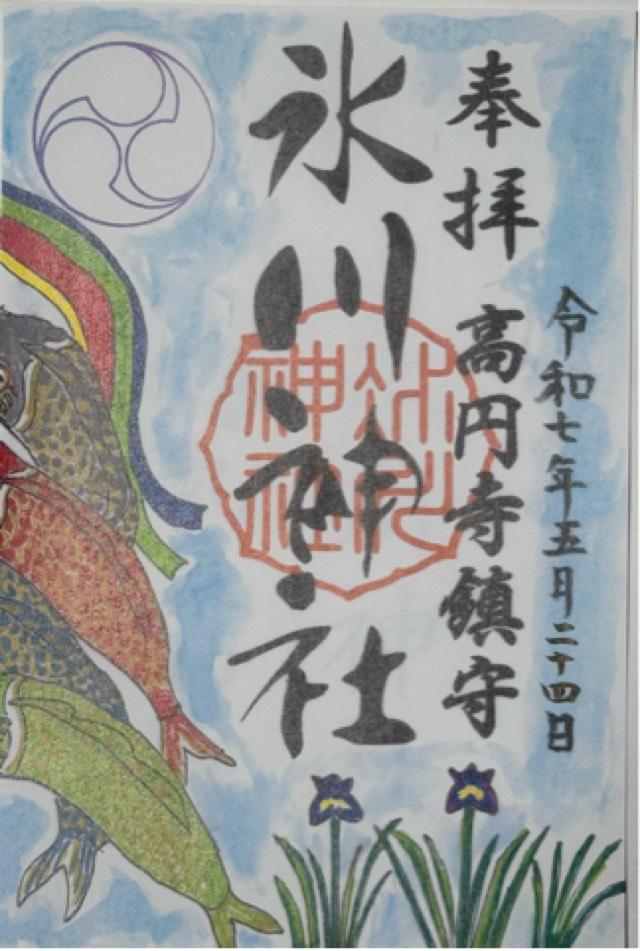 令和七年五月二十四日
奉拝 高円寺鎮守
氷川神社
氷川
神社